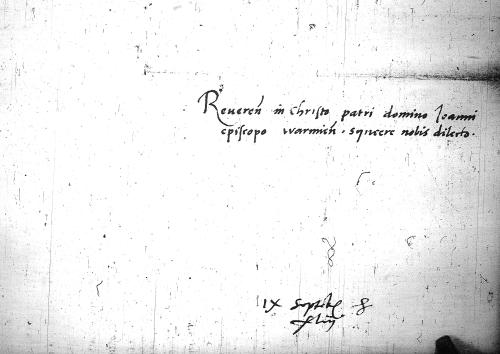 Reueren̄ in Christo patri domino Ioanni
episcopo warmien̄ . syncere nobis dilecto .
IX Septēb